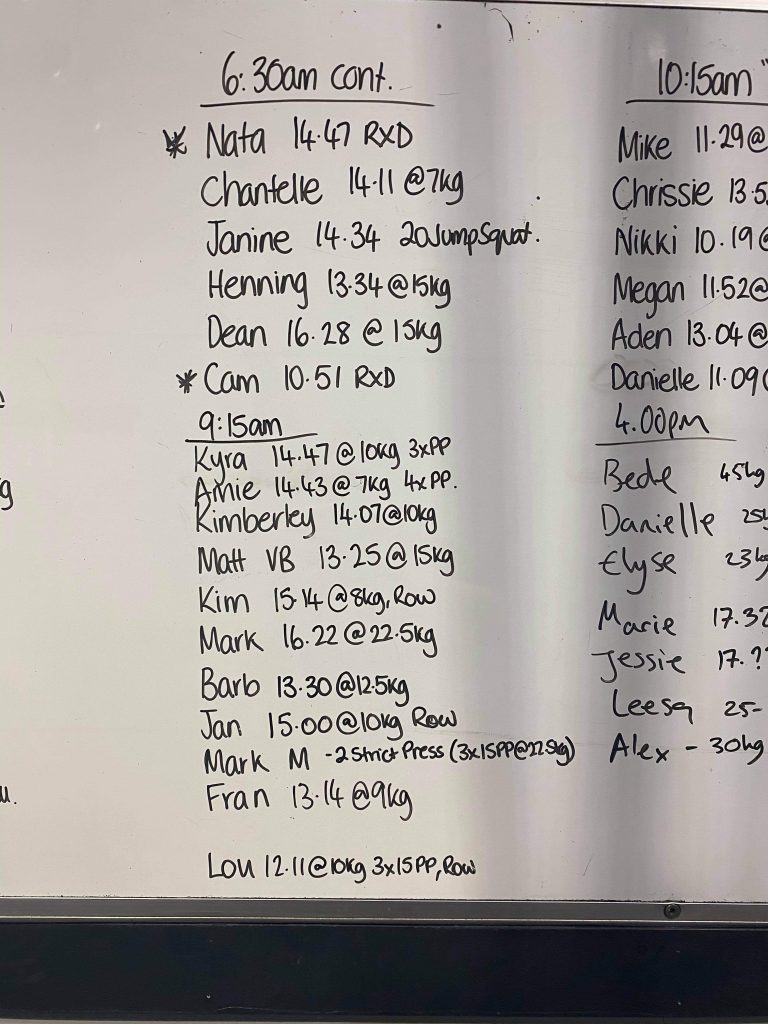 6:30am cont.
* Nata 14.47 RXD
Chantelle 14.11 @7kg
Janine 14.34 20JumpSquat.
Henning 13.34 @15kg
Dean 16.28 @ 15kg
* Cam 10.51 RXD
9:15am
Kyra 14.47 @ 10kg 3xPP
Amie 14.43 @ 7kg 4xPP.
Kimberley 14.07@10kg
Matt VB 13.25 @ 15kg
Kim 15.14 @8kg, Row
Mark 16.22 @ 22.5kg
Barb 13.30 @12.5kg
Jan 15.00@10kg Row
Mark M -2 Strict Press (3x15PP@22.5kg)
Fran 13.14 @9kg
Lou 12.11@10kg 3x15PP, Row
10:15am "
Mike 11.29@
Chrissie 13.5
Nikki 10.19@
Megan 11.52@
Aden 13.04 @
Danielle 11.09
4.00pm
Bede 45kg
Danielle 25
Elyse 23k
Marie 17.32
Jessie 17.??
Leesa 25-
Alex - 30kg